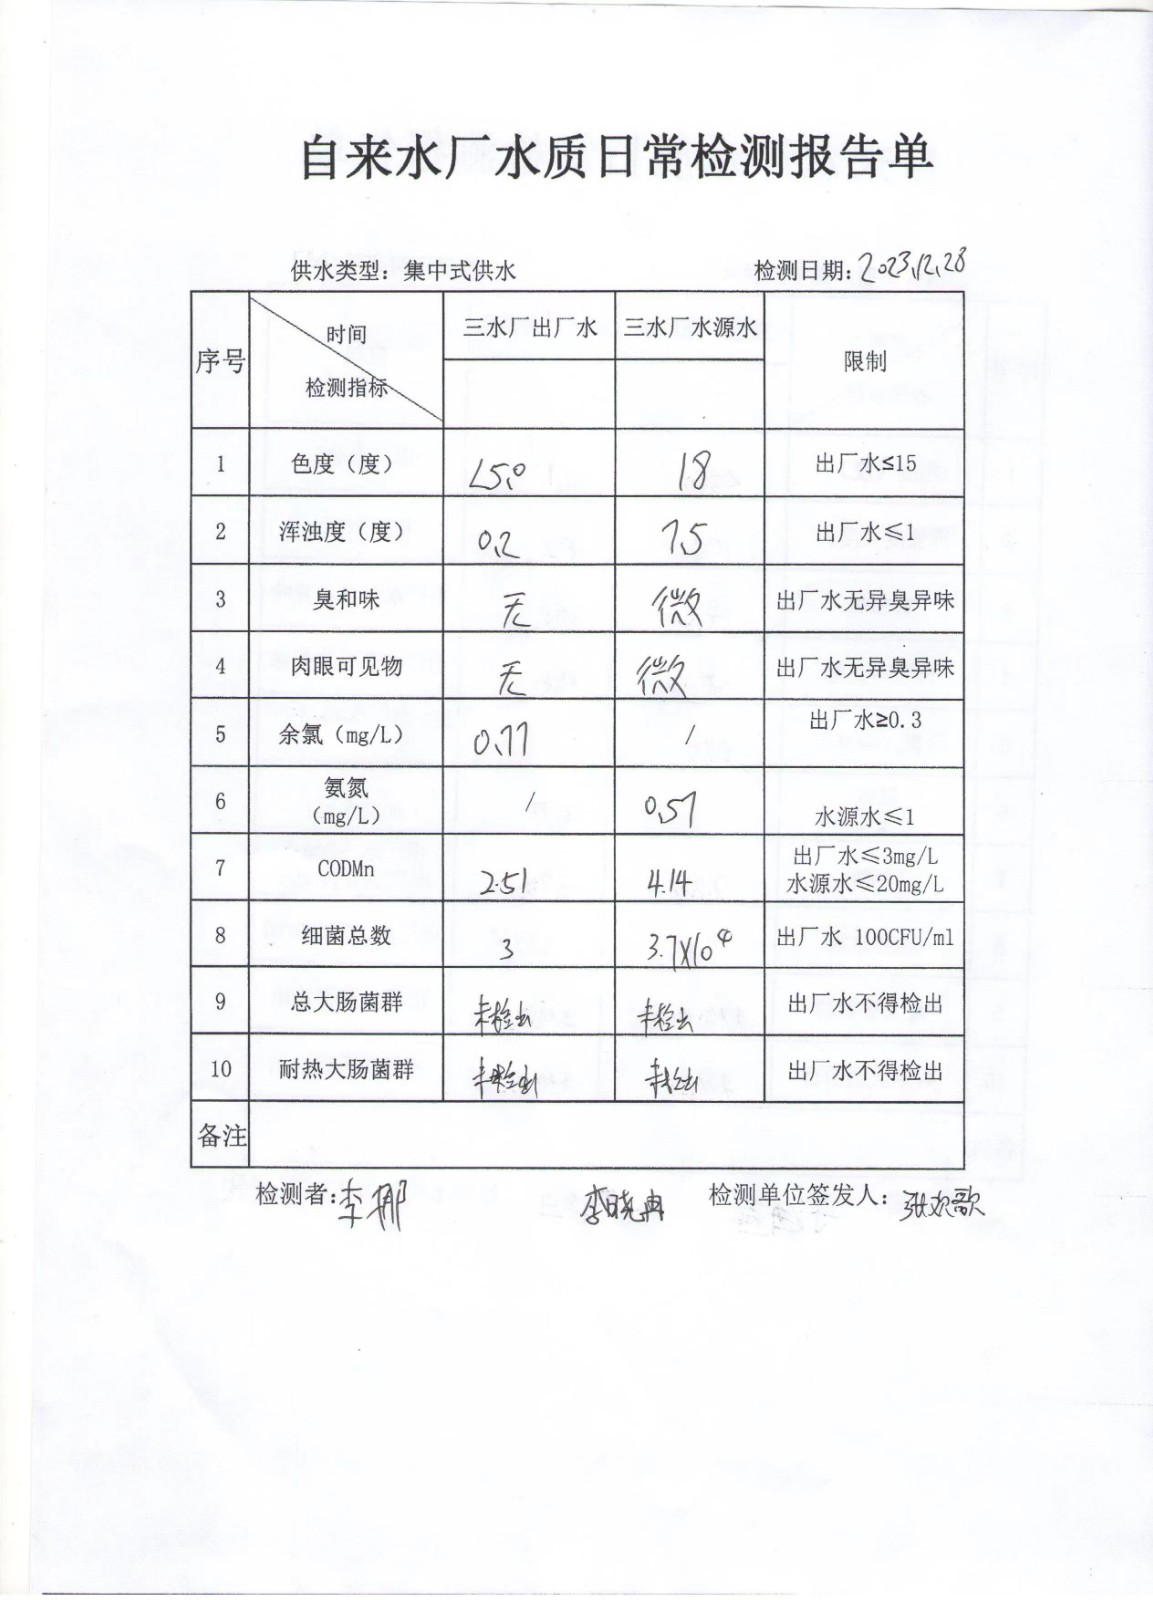 自来水厂水质日常检测报告单
供水类型：集中式供水 检测日期：2023.12.28
序号 时间 检测指标 三水厂出厂水 三水厂水源水 限制
1 色度（度） <5.0 18 出厂水≤15
2 浑浊度（度） 0.2 7.5 出厂水≤1
3 臭和味 无 微 出厂水无异臭异味
4 肉眼可见物 无 微 出厂水无异臭异味
5 余氯（mg/L） 0.77 / 出厂水≥0.3
6 氨氮（mg/L） / 0.57 水源水≤1
7 CODMn 2.51 4.14 出厂水≤3mg/L 水源水≤20mg/L
8 细菌总数 3 3.7X10⁴ 出厂水 100CFU/ml
9 总大肠菌群 未检出 未检出 出厂水不得检出
10 耐热大肠菌群 未检出 未检出 出厂水不得检出
备注
检测者：李娜 李晓冉 检测单位签发人：张欢歌